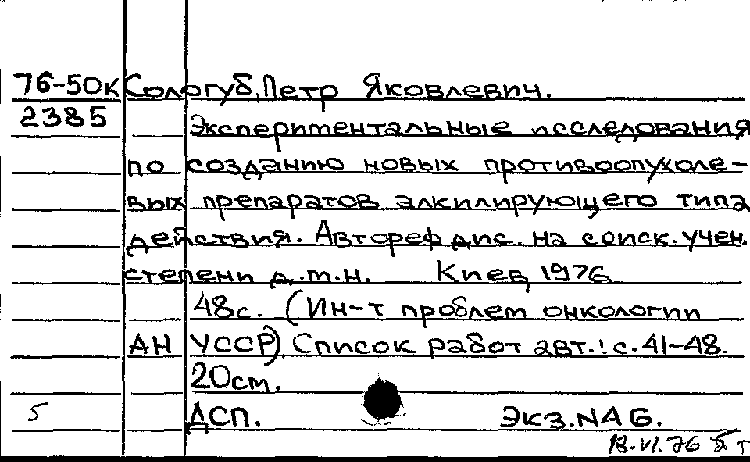 76-50к Сологуб, Петр Яковлевич.
2385 Экспериментальные исследования
по созданию новых противоопухоле-
вых препаратов алкилирующего типа
действия. Автореф дис. на соиск. учен.
степени д.м.н. Киев, 1976
48с. (Ин-т проблем онкологии
АН УССР). Список работ авт.: с. 41-48.
20см.
5 ДСП. Экз. №АБ.
18.VI.76